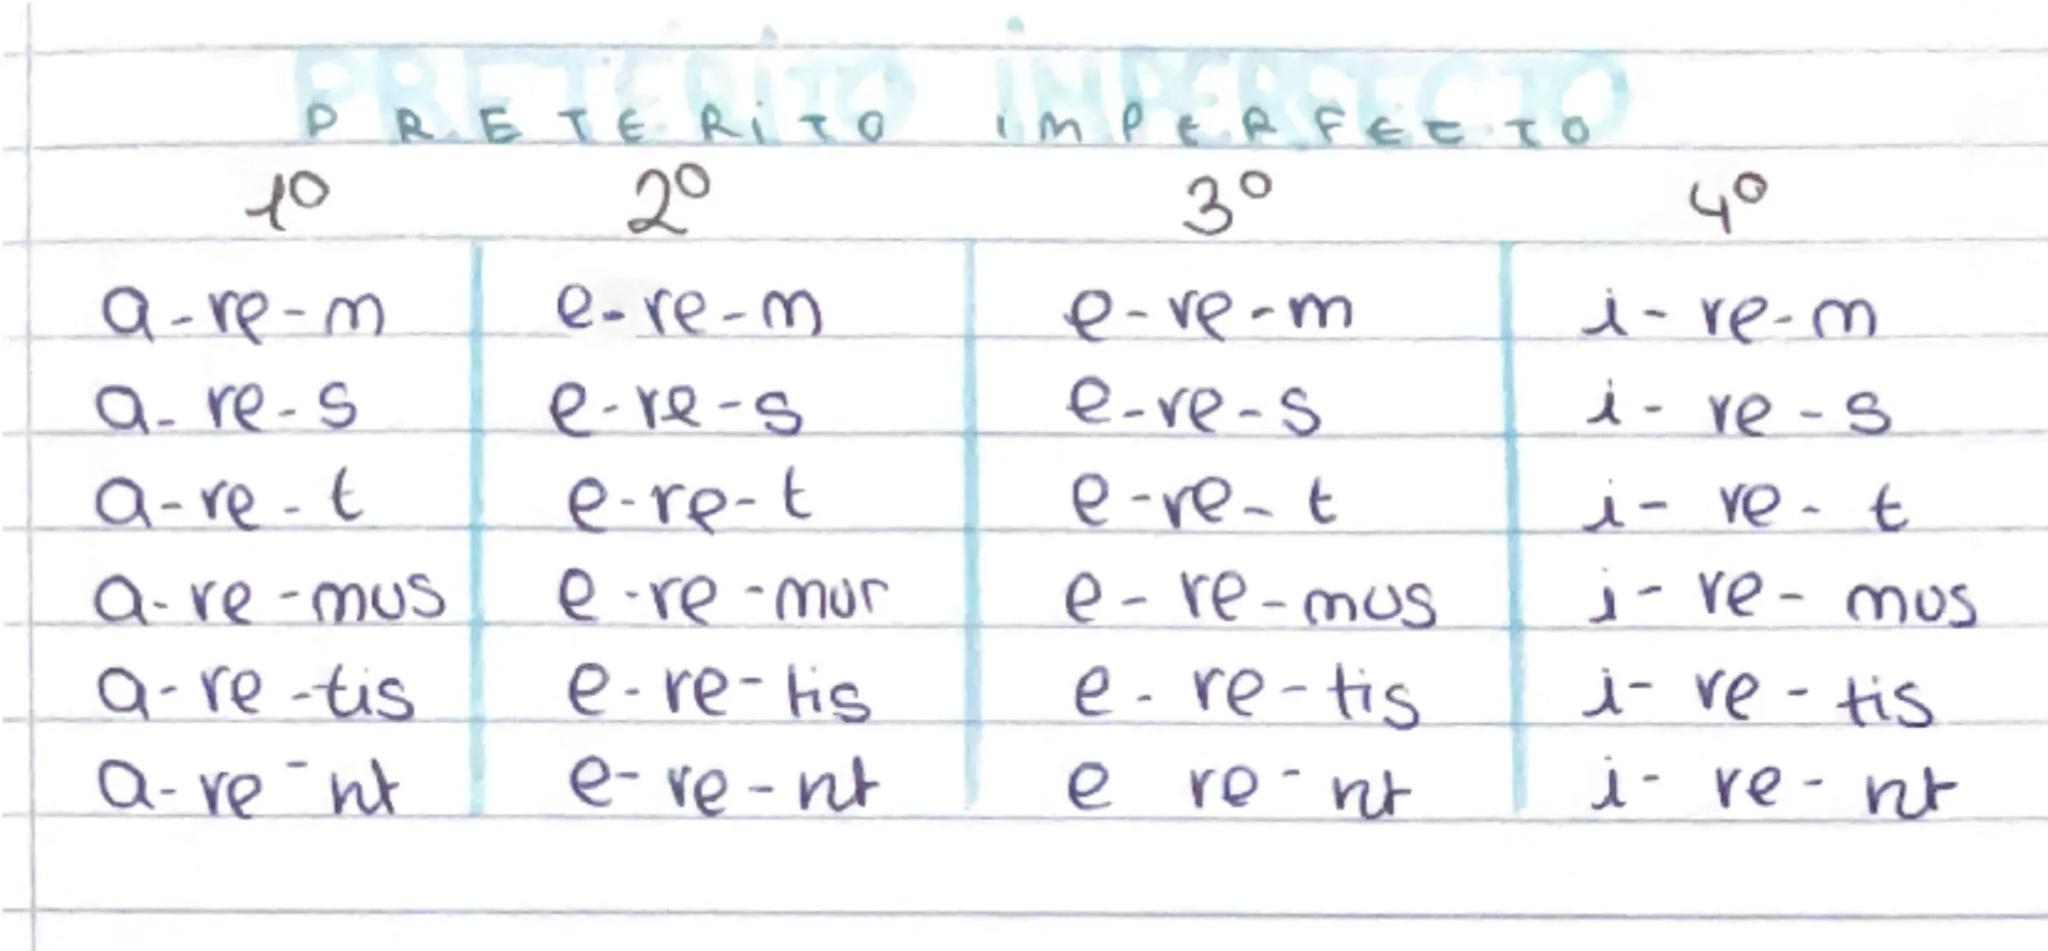 PRETERITO IMPERFECTO
1º 2º 3º 4º
a-re-m e-re-m e-re-m i-re-m
a-re-s e-re-s e-re-s i-re-s
a-re-t e-re-t e-re-t i-re-t
a-re-mus e-re-mur e-re-mus i-re-mus
a-re-tis e-re-tis e-re-tis i-re-tis
a-re-nt e-re-nt e re-nt i-re-nt